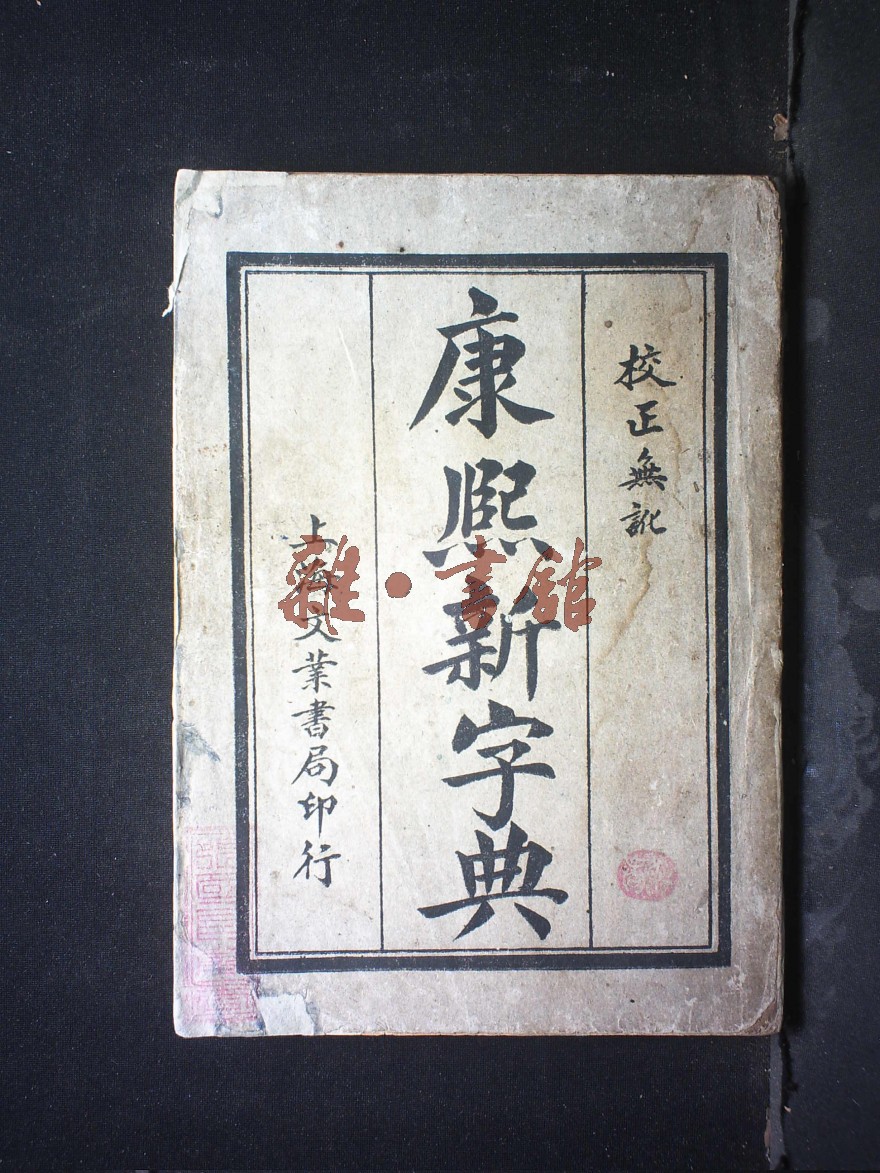 校正無訛
康熙新字典
上海文業書局印行
雜·書舘